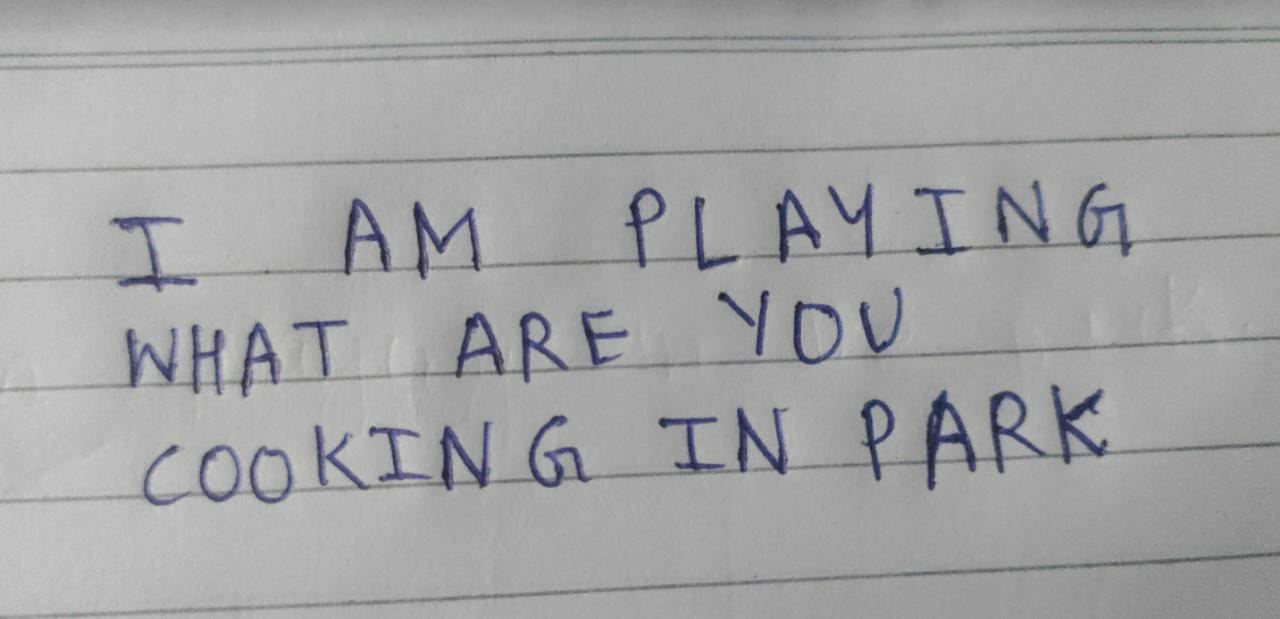 I AM PLAYING
WHAT ARE YOU
COOKING IN PARK